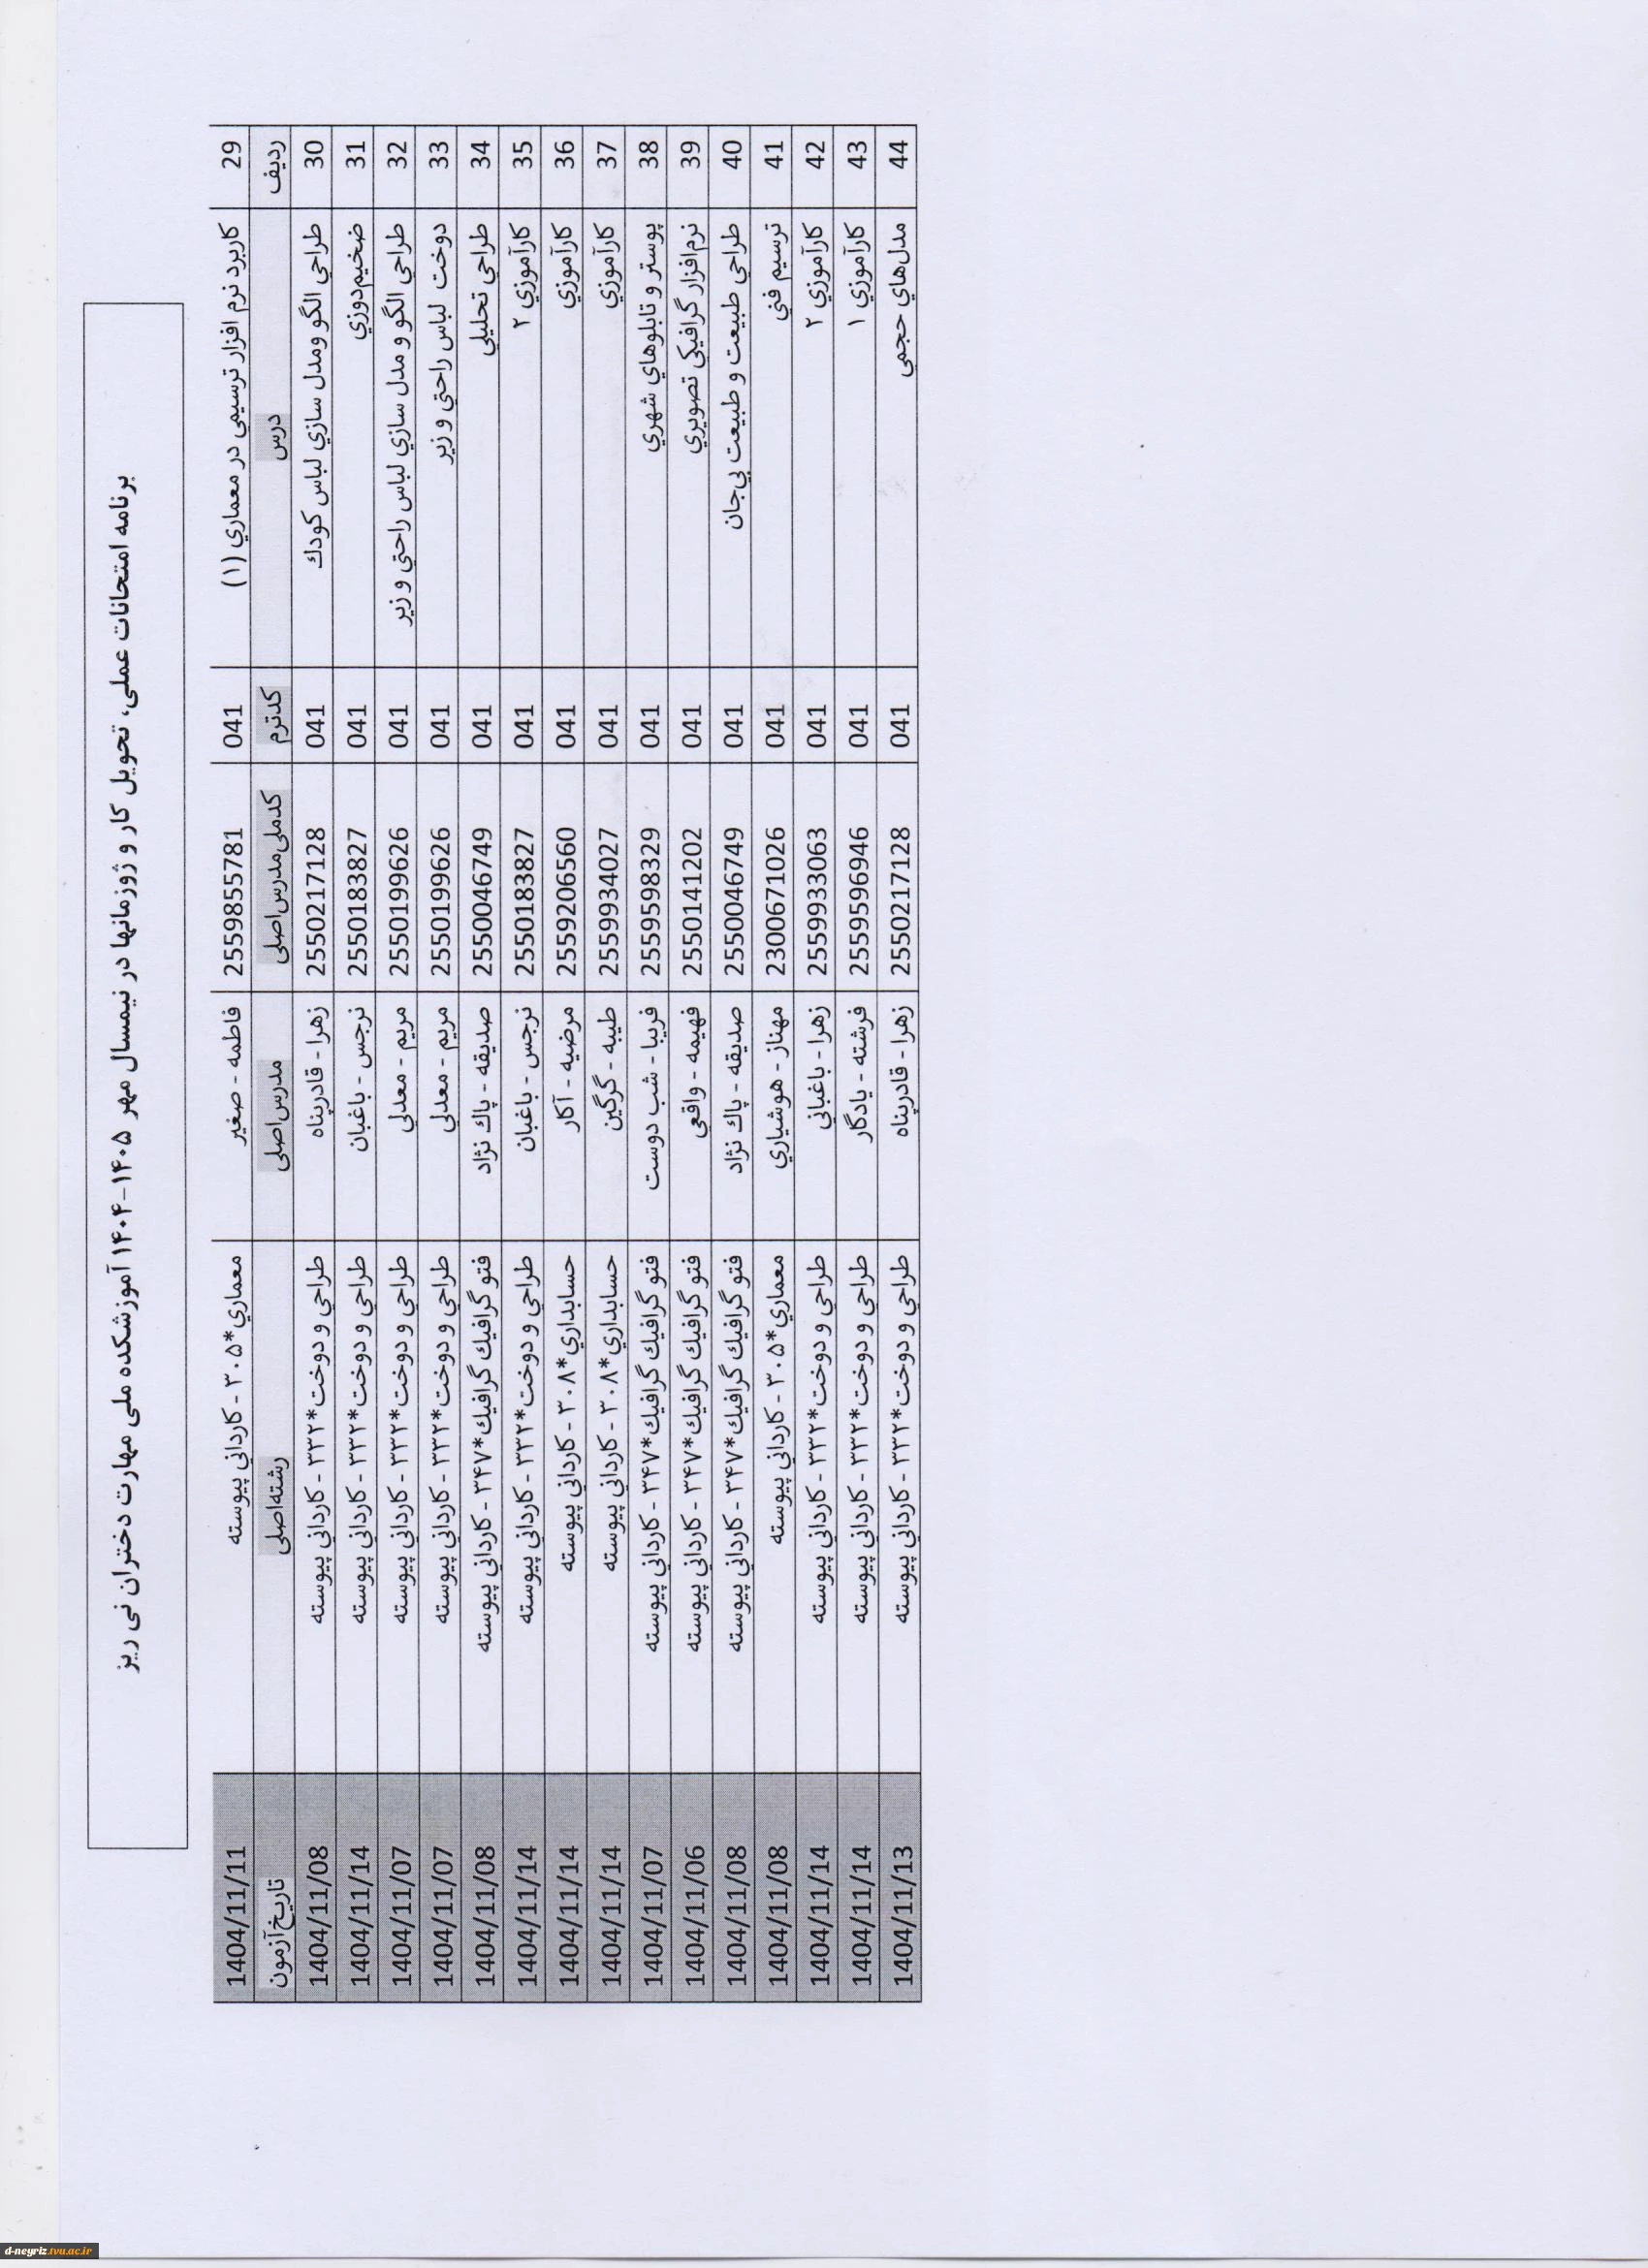 برنامه امتحانات عملی، تحویل کار و ژوژمانها در نیمسال مهر ۱۴۰۵-۱۴۰۴ آموزشکده ملی مهارت دختران نی ریز
29 کاربرد نرم افزار ترسیمی در معماري (۱) 041 2559855781 فاطمه - صغیر معماري*۳۰۵ - کارداني پیوسته 1404/11/11
ردیف درس کدترم کدملی‌مدرس‌اصلی مدرس‌اصلی رشته‌اصلی تاریخ‌آزمون
30 طراحي الگو ومدل سازي لباس کودك 041 2550217128 زهرا - قادرپناه طراحي و دوخت*۳۳۲ - کارداني پیوسته 1404/11/08
31 ضخیم‌دوزي 041 2550183827 نرجس - باغبان طراحي و دوخت*۳۳۲ - کارداني پیوسته 1404/11/14
32 طراحي الگو و مدل سازي لباس راحتي و زیر 041 2550199626 مریم - معدلي طراحي و دوخت*۳۳۲ - کارداني پیوسته 1404/11/07
33 دوخت لباس راحتي و زیر 041 2550199626 مریم - معدلي طراحي و دوخت*۳۳۲ - کارداني پیوسته 1404/11/07
34 طراحي تحلیلي 041 2550046749 صدیقه - پاك نژاد فتو گرافیك گرافیك*۳۴۷ - کارداني پیوسته 1404/11/08
35 کارآموزي ۲ 041 2550183827 نرجس - باغبان طراحي و دوخت*۳۳۲ - کارداني پیوسته 1404/11/14
36 کارآموزي 041 2559206560 مرضیه - آکار حسابداري*۳۰۸ - کارداني پیوسته 1404/11/14
37 کارآموزي 041 2559934027 طیبه - گرگین حسابداري*۳۰۸ - کارداني پیوسته 1404/11/14
38 پوستر و تابلوهاي شهري 041 2559598329 فریبا - شب دوست فتو گرافیك گرافیك*۳۴۷ - کارداني پیوسته 1404/11/07
39 نرم‌افزار گرافیکی تصویري 041 2550141202 فهیمه - واقعی فتو گرافیك گرافیك*۳۴۷ - کارداني پیوسته 1404/11/06
40 طراحي طبیعت و طبیعت بي‌جان 041 2550046749 صدیقه - پاك نژاد فتو گرافیك گرافیك*۳۴۷ - کارداني پیوسته 1404/11/08
41 ترسیم فني 041 2300671026 مهناز - هوشیاري معماري*۳۰۵ - کارداني پیوسته 1404/11/08
42 کارآموزي ۲ 041 2559933063 زهرا - باغبانی طراحي و دوخت*۳۳۲ - کارداني پیوسته 1404/11/14
43 کارآموزي ۱ 041 2559596946 فرشته - یادگار طراحي و دوخت*۳۳۲ - کارداني پیوسته 1404/11/14
44 مدل‌هاي حجمی 041 2550217128 زهرا - قادرپناه طراحي و دوخت*۳۳۲ - کارداني پیوسته 1404/11/13
d-neyriz.tvu.ac.ir